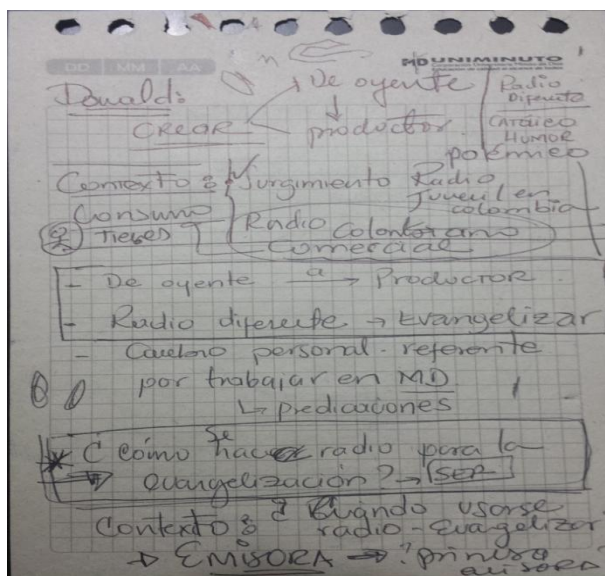 DD MM AA
UNIMINUTO
Donald:
CREAR
De oyente
↓
productor
Radio
Diferente
Católico
HUMOR
polémico
Contexto: Surgimiento Radio
Juvenil en
colombia
Consumo
Radio
Comercial
- De oyente a → Productor
- Radio diferente → Evangelizar
- personal - referente
por trabajar en MD
↳ predicaciones
* ¿Cómo se hace radio para la
→ evangelización? → SER
Contexto: ¿Cuándo
radio - Evangelizar
→ EMISORA → ¿primera
emisora?